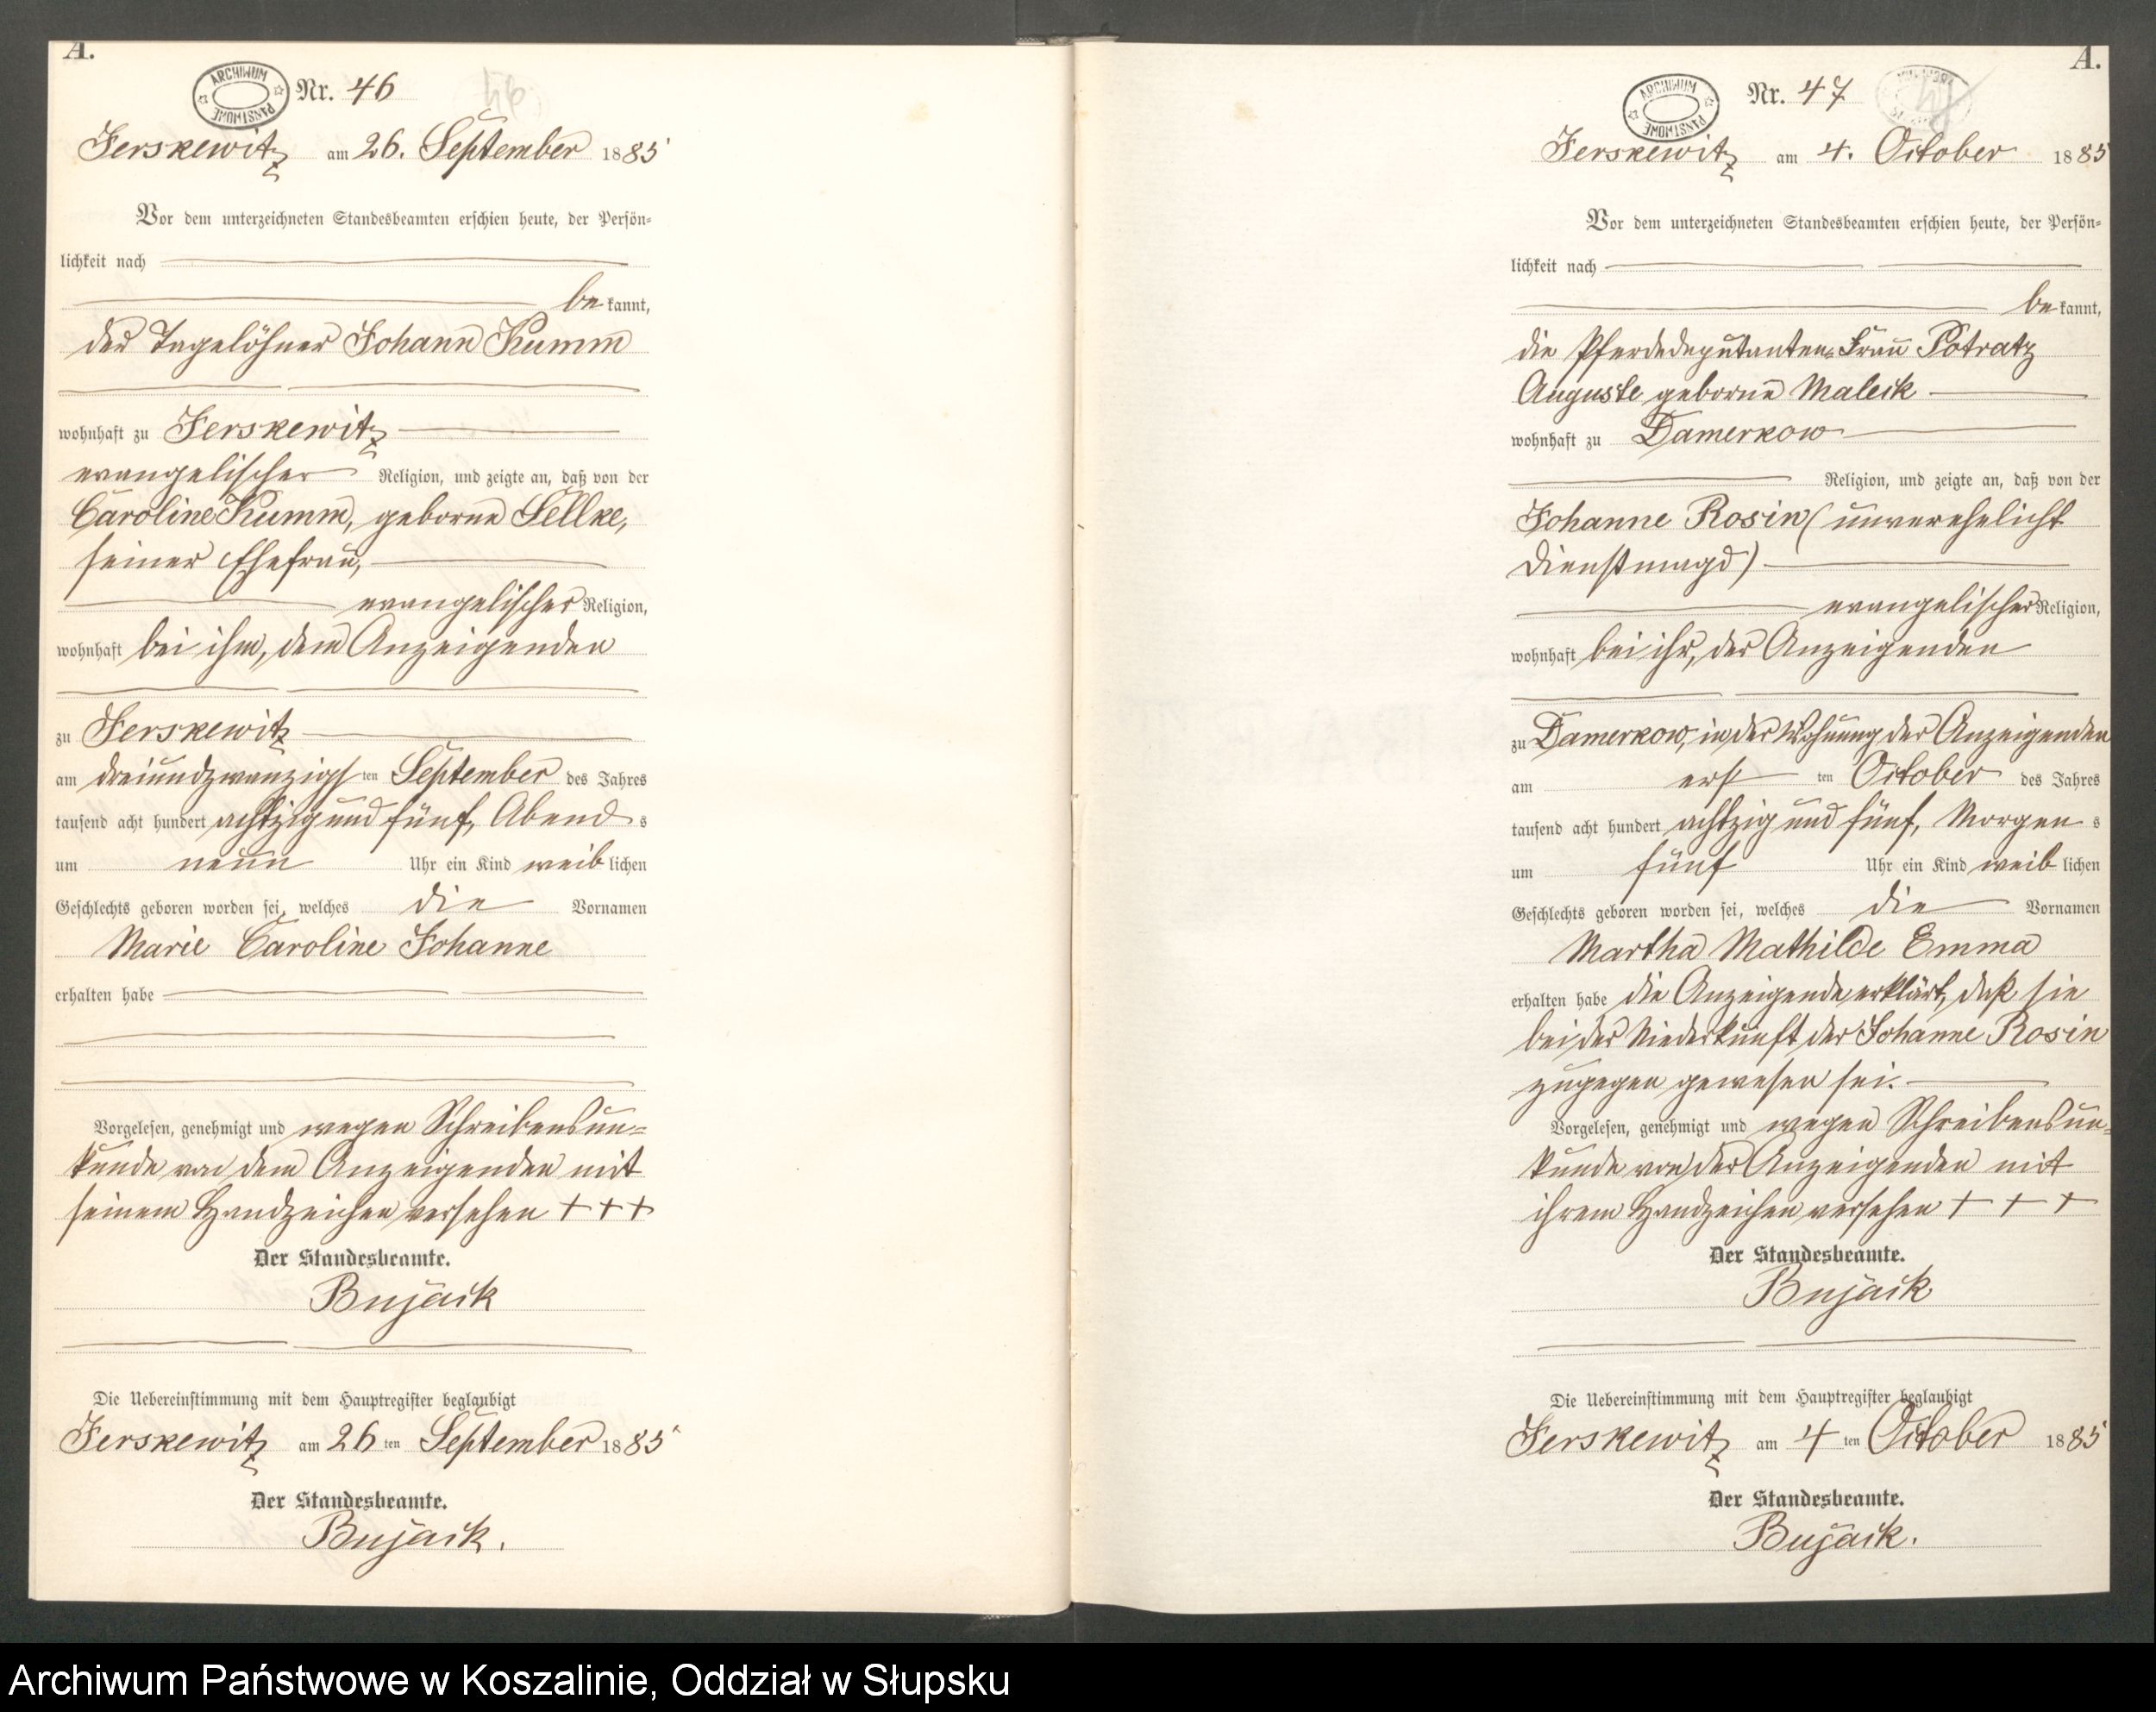 A.
ARCHIWUM PAŃSTWOWE
Nr. 46
46
Jerskewitz am 26. September 1885
Vor dem unterzeichneten Standesbeamten erschien heute, der Persön-
lichkeit nach
be kannt,
der Tagelöhner Johann Kumm
wohnhaft zu Jerskewitz
evangelischer Religion, und zeigte an, daß von der
Caroline Kumm, geborne Sellke,
seiner Ehefrau,
evangelischer Religion,
wohnhaft bei ihm, dem Anzeigenden
zu Jerskewitz
am dreiundzwanzigsten September des Jahres
tausend acht hundert achtzig und fünf, Abends
um neun Uhr ein Kind weiblichen
Geschlechts geboren worden sei, welches die Vornamen
Marie Caroline Johanne
erhalten habe
Vorgelesen, genehmigt und wegen Schreibensun-
kunde von dem Anzeigenden mit
seinem Handzeichen versehen + + +
Der Standesbeamte.
Bujack
Die Uebereinstimmung mit dem Hauptregister beglaubigt
Jerskewitz am 26 ten September 1885
Der Standesbeamte.
Bujack.
A.
ARCHIWUM PAŃSTWOWE
Nr. 47
47
Jerskewitz am 4. October 1885
Vor dem unterzeichneten Standesbeamten erschien heute, der Persön-
lichkeit nach
be kannt,
die Pferdedeputanten-Frau Potratz
Auguste geborne Maleck
wohnhaft zu Damerkow
Religion, und zeigte an, daß von der
Johanne Rosin (unverehelicht
Dienstmagd)
evangelischer Religion,
wohnhaft bei ihr, der Anzeigenden
zu Damerkow, in der Wohnung der Anzeigenden
am ersten October des Jahres
tausend acht hundert achtzig und fünf, Morgens
um fünf Uhr ein Kind weiblichen
Geschlechts geboren worden sei, welches die Vornamen
Martha Mathilde Emma
erhalten habe die Anzeigende erklärt, daß sie
bei der Niederkunft der Johanne Rosin
zugegen gewesen sei.
Vorgelesen, genehmigt und wegen Schreibensun-
kunde von der Anzeigenden mit
ihrem Handzeichen versehen + + +
Der Standesbeamte.
Bujack
Die Uebereinstimmung mit dem Hauptregister beglaubigt
Jerskewitz am 4 ten October 1885
Der Standesbeamte.
Bujack.
Archiwum Państwowe w Koszalinie, Oddział w Słupsku